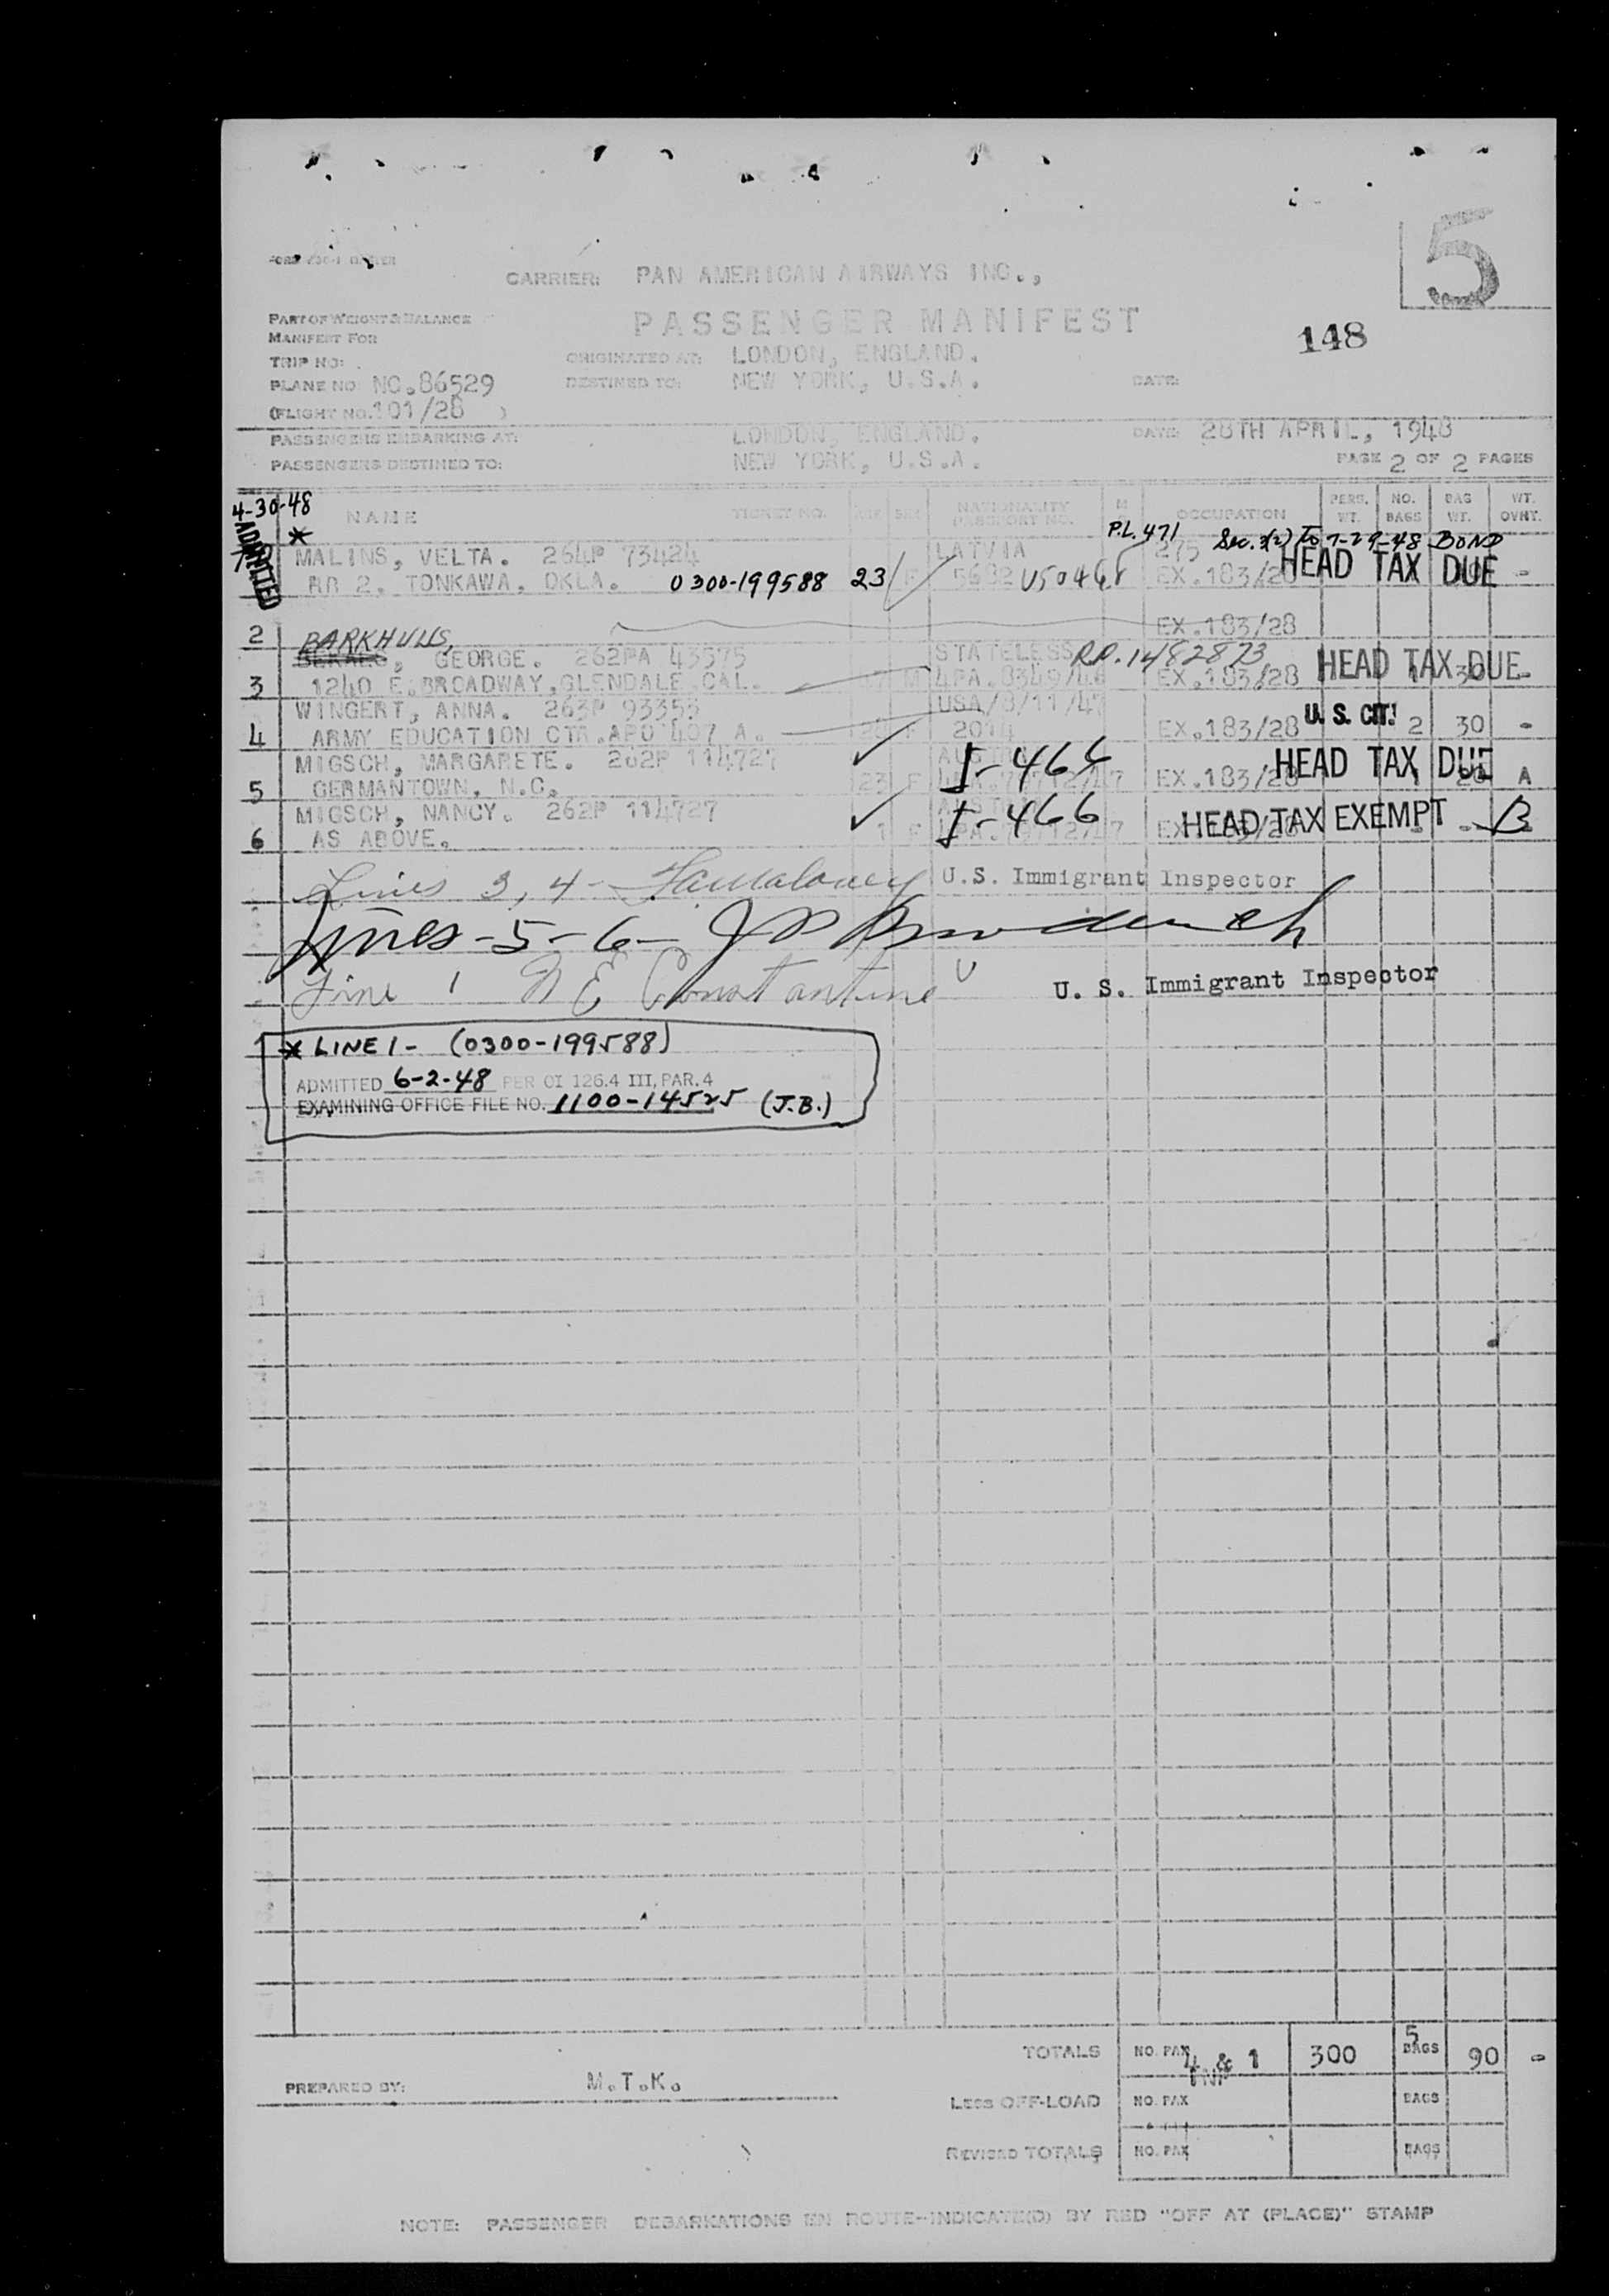 5
CARRIER: PAN AMERICAN AIRWAYS INC.,
PART OF WEIGHT & BALANCE
PASSENGER MANIFEST
MANIFEST FOR
148
TRIP NO:
ORIGINATED AT: LONDON, ENGLAND.
PLANE NO NC.86529
DESTINED TO: NEW YORK, U.S.A.
DATE:
(FLIGHT NO. 101/28 )
PASSENGERS EMBARKING AT: LONDON, ENGLAND. DATE: 28TH APRIL, 1948
PASSENGERS DESTINED TO: NEW YORK, U.S.A. PAGE 2 OF 2 PAGES
4-30-48
ADMITTED
NAME TICKET NO. AGE SEX NATIONALITY PASSPORT NO. OCCUPATION PERS. WT. NO. BAGS BAG WT. WT. OVHT.
* P.L. 471 Sec. 3(2) To 7-29-48 BOND
MALINS, VELTA. 264P 73424 LATVIA 275
RR 2. TONKAWA, OKLA. 0300-199588 23 F 5682 V50468 EX.183/28 HEAD TAX DUE -
2 EX.183/28
BARKHUIIS,
GEORGE. 262PA 43575 STATELESS RP.1482873
3 1240 E.BROADWAY,GLENDALE CAL. M 4PA.8349/46 EX.183/28 HEAD TAX DUE -
WINGERT, ANNA. 263P 93353 USA/8/11/47
4 ARMY EDUCATION CTR.APO 407 A. F 2014 EX.183/28 U.S. CIT. 2 30 -
MIGSCH, MARGARETE. 262P 114727 I-466
5 GERMANTOWN, N.C. 23 F EX.183/28 HEAD TAX DUE A
MIGSCH, NANCY. 262P 114727 I-466
6 AS ABOVE. 1 F HEAD TAX EXEMPT B
Lines 3, 4- U.S. Immigrant Inspector
Lines-5-6-
Line 1 N E Constantine U. S. Immigrant Inspector
* LINE 1- (0300-199588)
ADMITTED 6-2-48 PER OI 126.4 III, PAR. 4
EXAMINING OFFICE FILE NO. 1100-14525 (J.B.)
TOTALS NO. PAX 4 & 1 INF 300 5 BAGS 90 -
PREPARED BY: M.T.K.
LESS OFF-LOAD NO. PAX BAGS
REVISED TOTALS NO. PAX BAGS
NOTE: PASSENGER DEBARKATIONS EN ROUTE-INDICATE(D) BY RED "OFF AT (PLACE)" STAMP